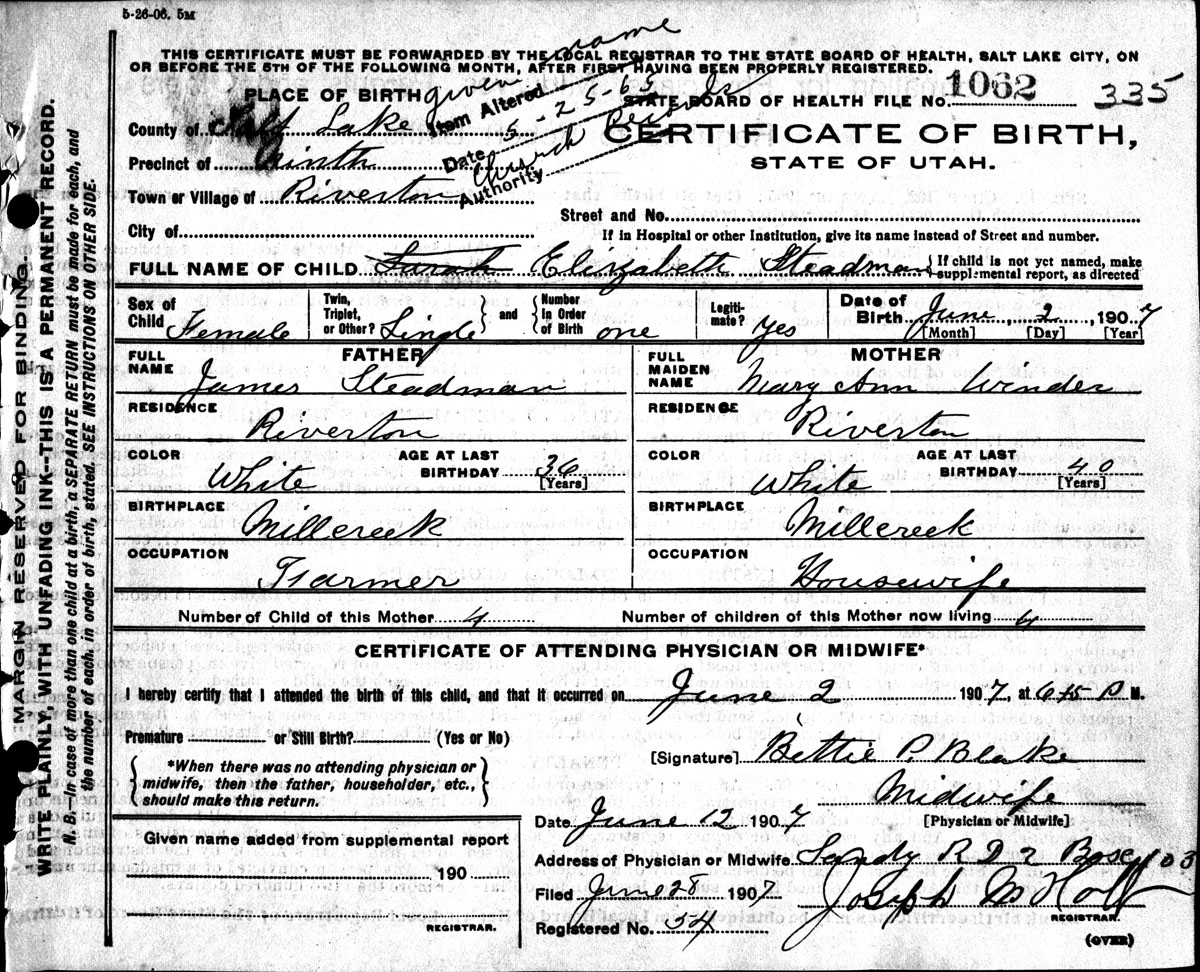 5-26-06. 5M
THIS CERTIFICATE MUST BE FORWARDED BY THE LOCAL REGISTRAR TO THE STATE BOARD OF HEALTH, SALT LAKE CITY, ON
OR BEFORE THE 5TH OF THE FOLLOWING MONTH, AFTER FIRST HAVING BEEN PROPERLY REGISTERED.
PLACE OF BIRTH
given name
Item Altered
Date 5-25-65
Authority Church Records
STATE BOARD OF HEALTH FILE No. 1062 335
CERTIFICATE OF BIRTH,
STATE OF UTAH.
County of Salt Lake
Precinct of Ninth
Town or Village of Riverton
Street and No.
City of
If in Hospital or other Institution, give its name instead of Street and number.
FULL NAME OF CHILD Sarah Elizabeth Steadman { If child is not yet named, make supplemental report, as directed
Sex of Child Female
Twin, Triplet, or Other? Single } and { Number In Order of Birth one
Legitimate? Yes
Date of Birth June 2, 1907
[Month] [Day] [Year]
FATHER
FULL NAME James Steadman
RESIDENCE Riverton
COLOR White AGE AT LAST BIRTHDAY 36 [Years]
BIRTHPLACE Millcreek
OCCUPATION Farmer
MOTHER
FULL MAIDEN NAME Mary Ann Winder
RESIDENCE Riverton
COLOR White AGE AT LAST BIRTHDAY 40 [Years]
BIRTHPLACE Millcreek
OCCUPATION Housewife
Number of Child of this Mother 4 Number of children of this Mother now living 4
CERTIFICATE OF ATTENDING PHYSICIAN OR MIDWIFE*
I hereby certify that I attended the birth of this child, and that it occurred on June 2 1907, at 6 45 P M.
Premature or Still Birth? (Yes or No)
*When there was no attending physician or
midwife, then the father, householder, etc.,
should make this return.
[Signature] Bettie P. Blake
Midwife
[Physician or Midwife]
Date June 12 1907
Address of Physician or Midwife Sandy R D 2 Box 103
Filed June 28 1907 Joseph M Holt
REGISTRAR.
Registered No. 54
(OVER)
Given name added from supplemental report
190
REGISTRAR.
MARGIN RESERVED FOR BINDING.
WRITE PLAINLY, WITH UNFADING INK--THIS IS A PERMANENT RECORD.
N. B.—In case of more than one child at a birth, a SEPARATE RETURN must be made for each, and
the number of each, in order of birth, stated. SEE INSTRUCTIONS ON OTHER SIDE.